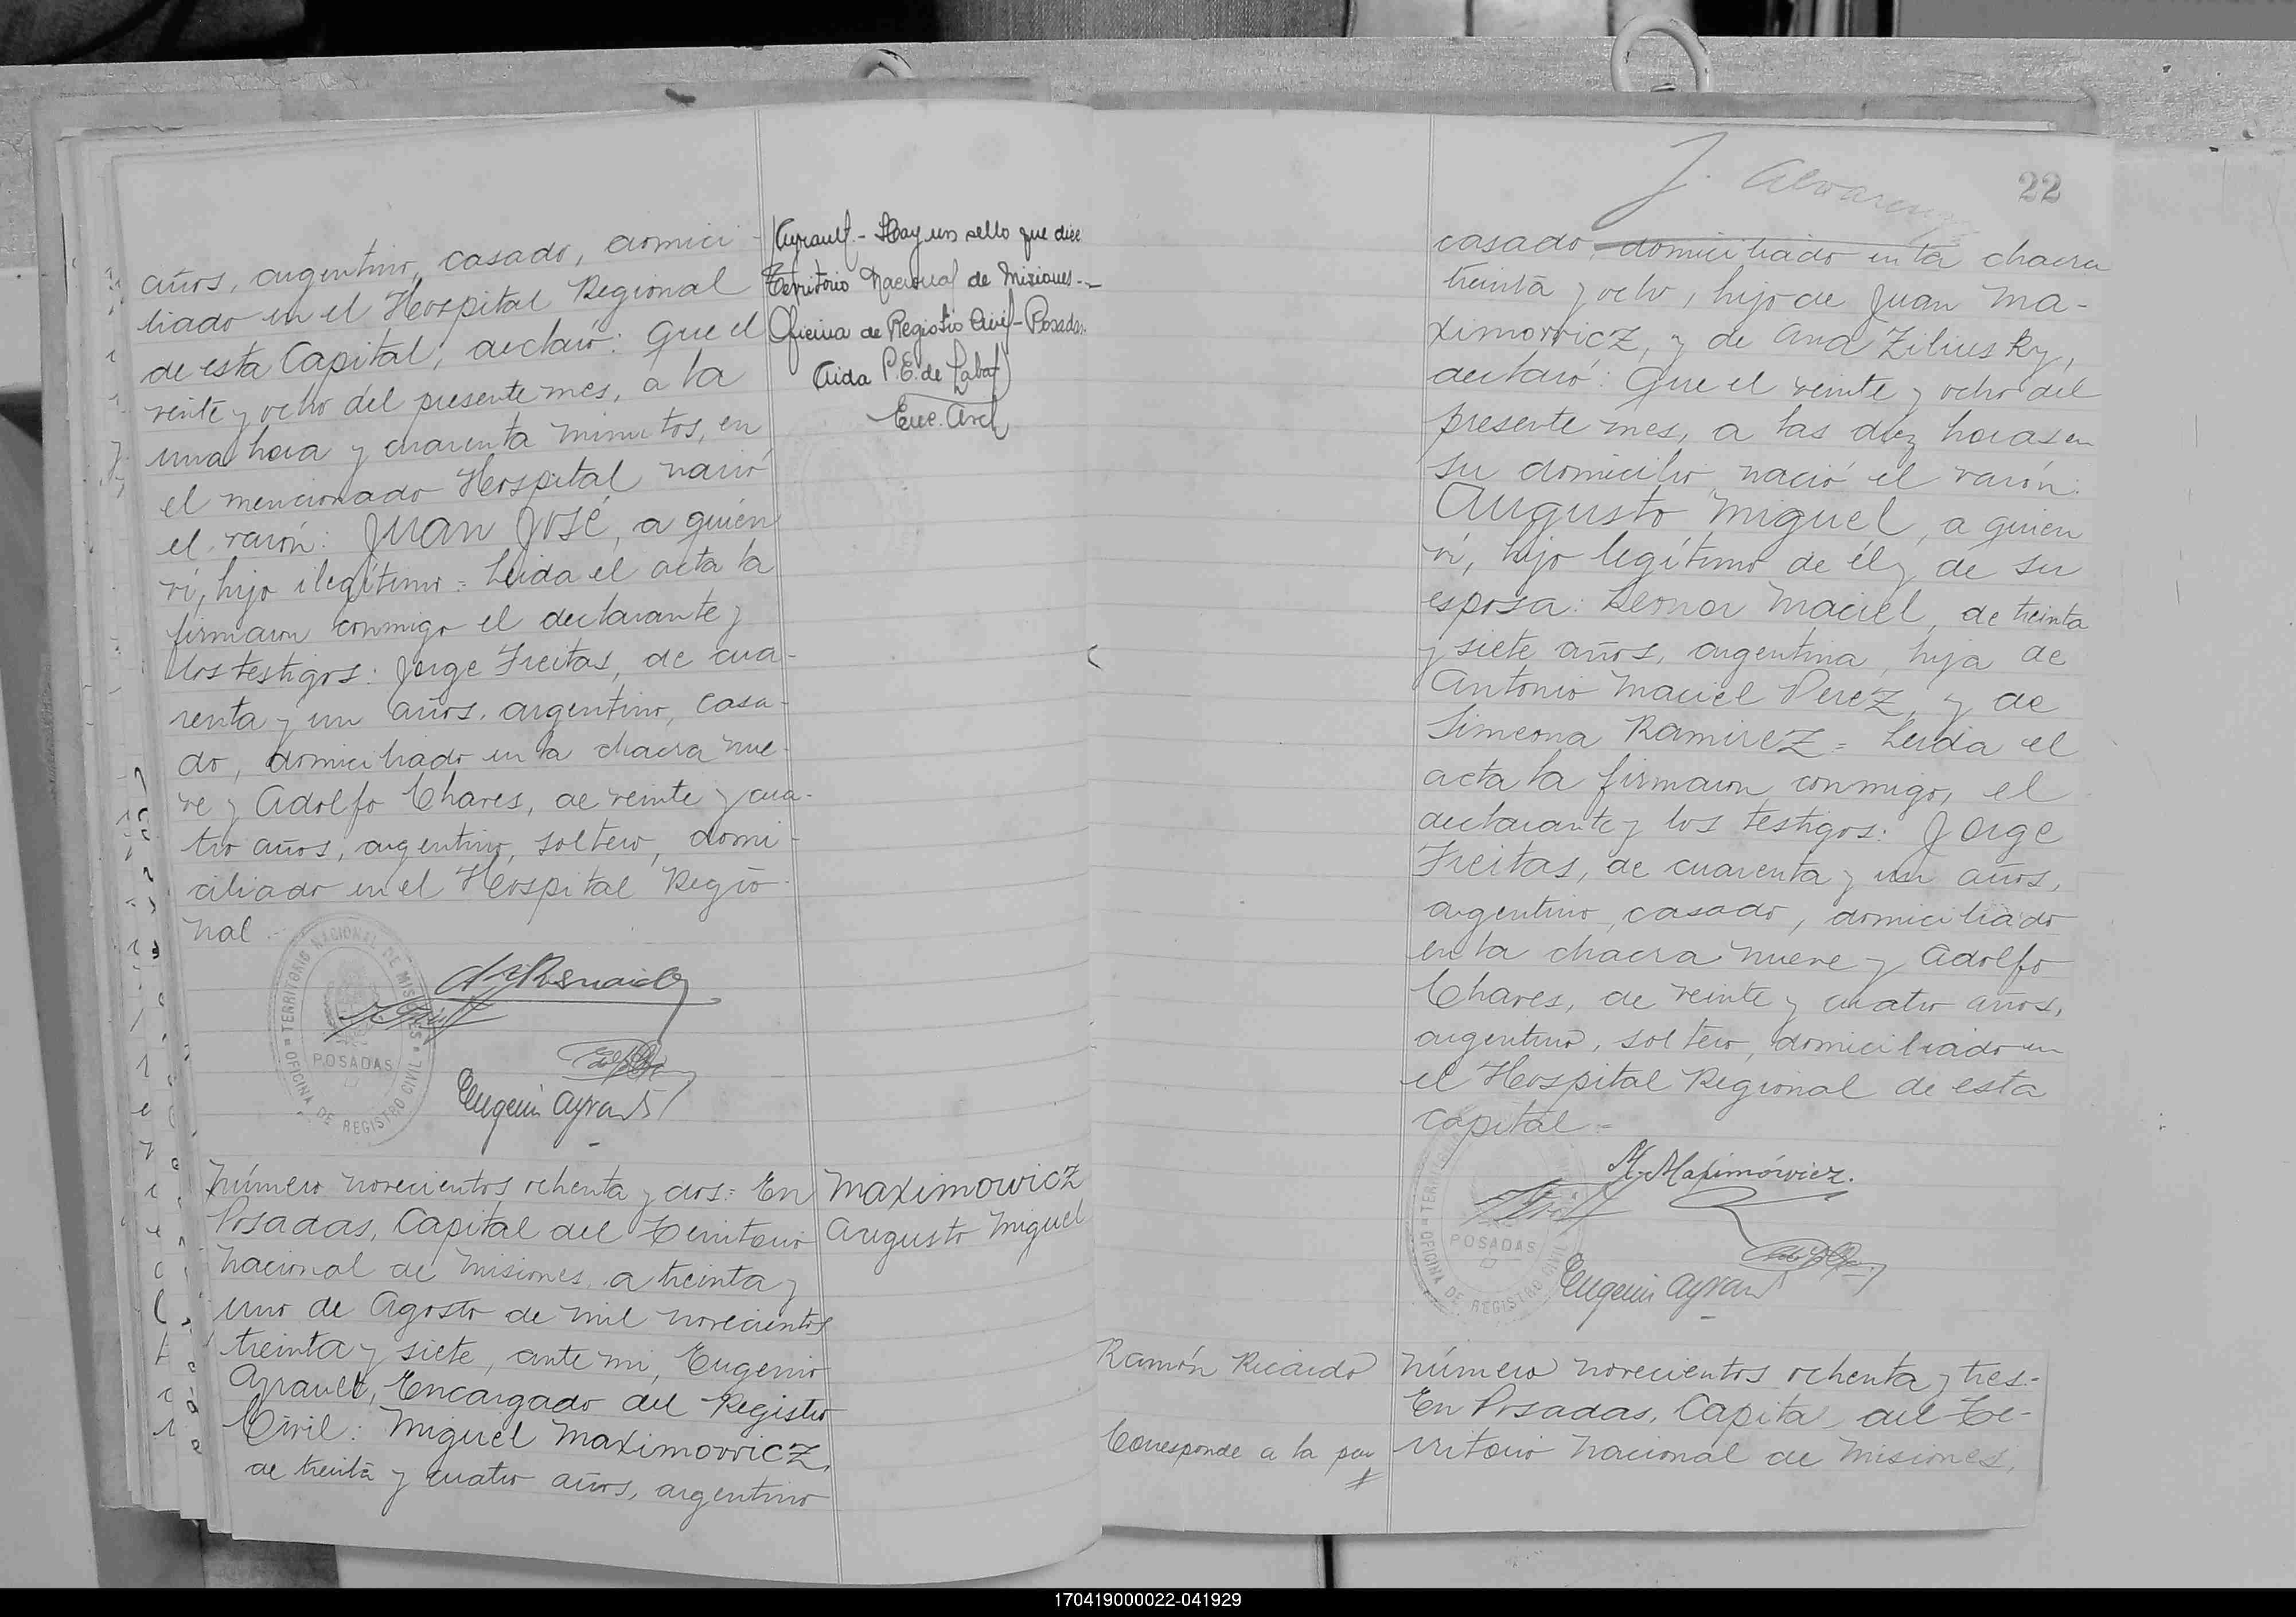 años, argentino, casado, domici-
liado en el Hospital Regional
de esta Capital, declaró: Que el
veinte y ocho del presente mes, a la
una hora y cuarenta minutos, en
el mencionado Hospital nació
el varón: Juan José, a quién
ví, hijo ilegítimo = Leida el acta la
firmaron conmigo el declarante y
los testigos: Jorge Freitas, de cua-
renta y un años, argentino, casa-
do, domiciliado en la chacra nue-
ve y Adolfo Chaves, de veinte y cua-
tro años, argentino, soltero, domi-
ciliado en el Hospital Regio-
nal -
TERRITORIO NACIONAL DE MISIONES
OFICINA DE REGISTRO CIVIL
POSADAS
Eugenio Ayrault
Ayrault.- Hay un sello que dice
Territorio Nacional de Misiones.-
Oficina de Registro Civil - Posadas.
Aida P.E. de Labat
Enc. Arch
Número novecientos ochenta y dos: En
Posadas, Capital del Territorio
Nacional de Misiones, a treinta y
uno de Agosto de mil novecientos
treinta y siete, ante mi, Eugenio
Ayrault, Encargado del Registro
Civil: Miguel Maximowicz,
de treinta y cuatro años, argentino
Maximowicz
Augusto Miguel
22
casado, domiciliado en la chacra
treinta y ocho, hijo de Juan Ma-
ximowicz, y de Ana Ziliusky,
declaró: Que el veinte y ocho del
presente mes, a las diez horas en
su domicilio nació el varón:
Augusto Miguel, a quien
ví, hijo legítimo de él y de su
esposa: Leonor Maciel, de treinta
y siete años, argentina, hija de
Antonio Maciel Perez, y de
Simeona Ramirez = Leida el
acta la firmaron conmigo, el
declarante y los testigos: Jorge
Freitas, de cuarenta y un años,
argentino, casado, domiciliado
en la chacra nueve y Adolfo
Chaves, de veinte y cuatro años,
argentino, soltero, domiciliado en
el Hospital Regional de esta
capital =
M. Maximówicz.
POSADAS
OFICINA DE REGISTRO CIVIL
Eugenio Ayrault
Ramón Ricardo
Corresponde a la par
Número novecientos ochenta y tres.-
En Posadas, Capital del Te-
rritorio Nacional de Misiones,
170419000022-041929